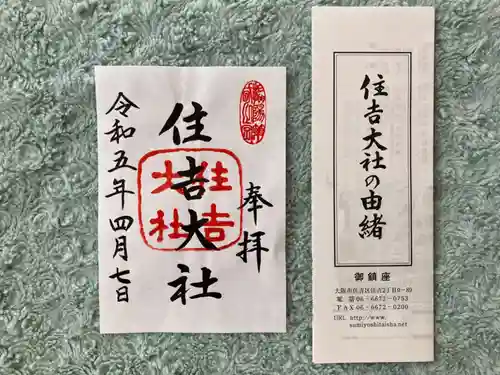 奉拝
住吉大社
住吉大社
令和五年四月七日
住吉大社の由緒
御鎮座
大阪市住吉区住吉2丁目9-89
電話 06-6672-0753
FAX 06-6672-0200
URL http://www.
sumiyoshitaisha.net